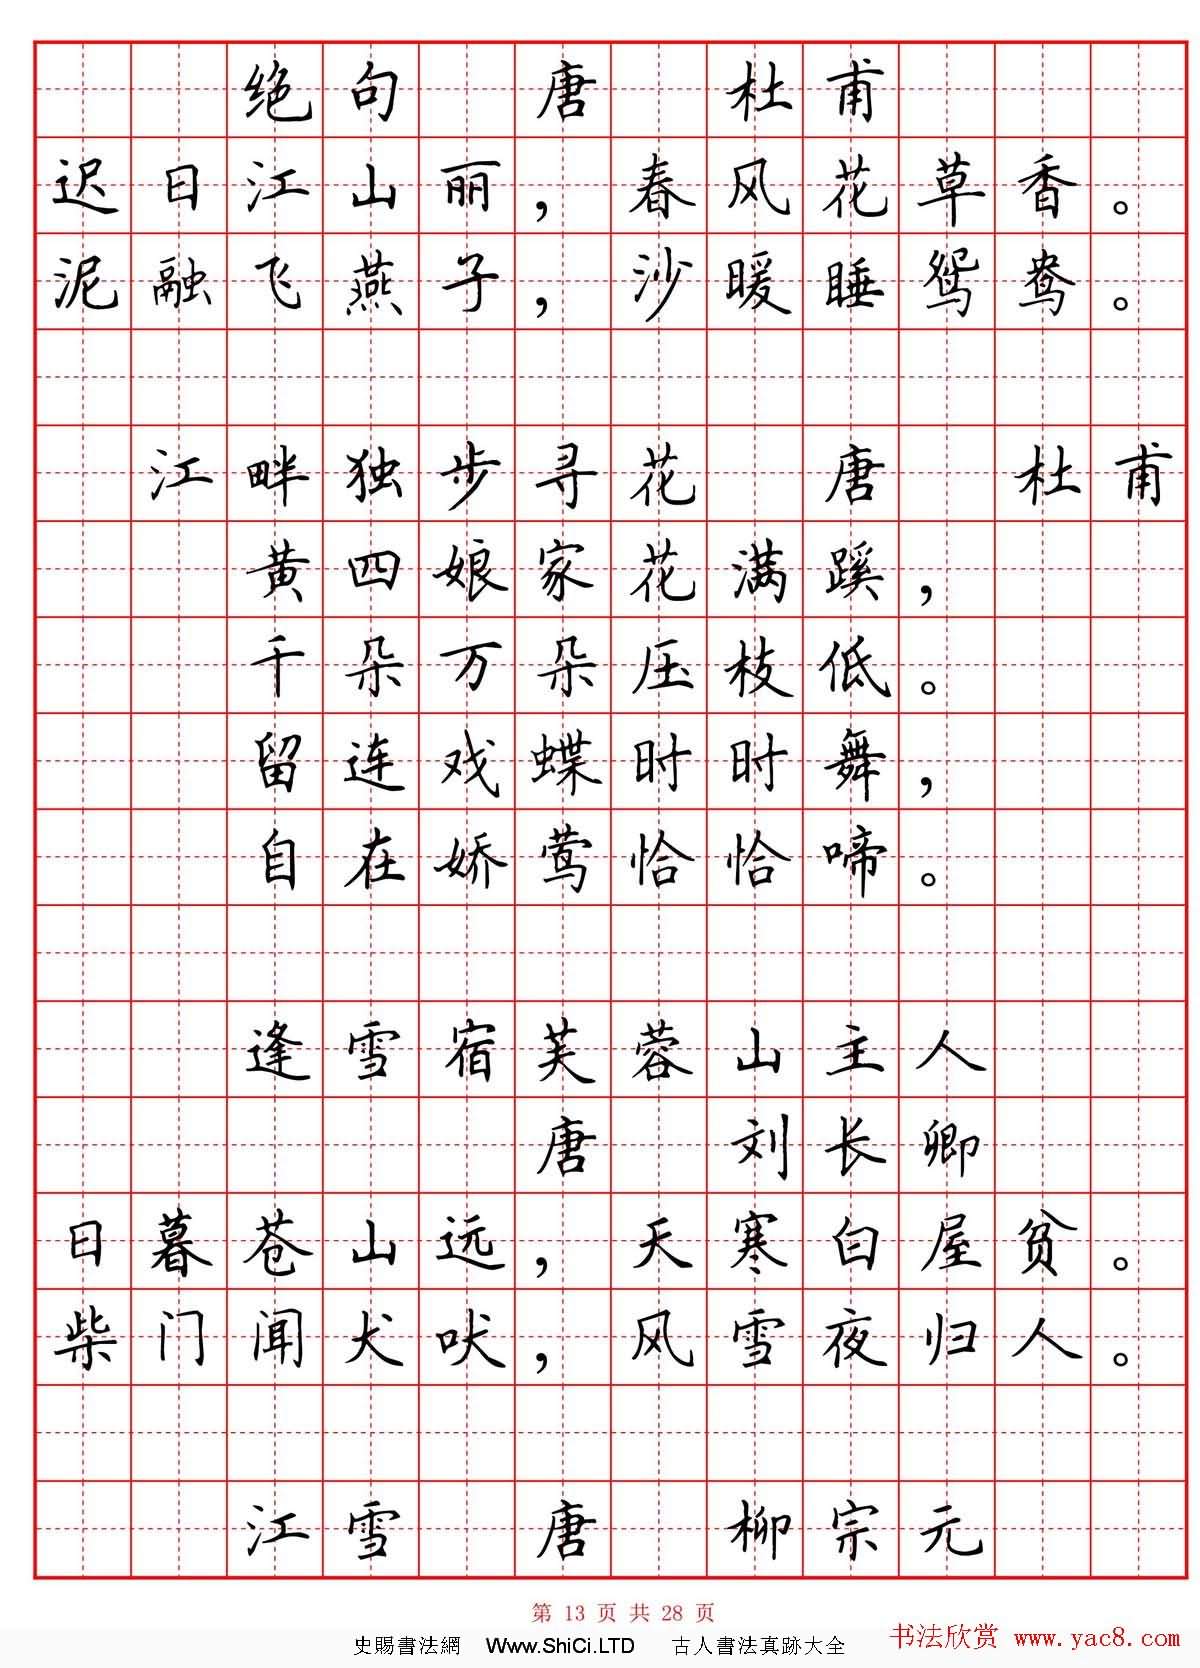 绝句 唐 杜甫
迟日江山丽，春风花草香。
泥融飞燕子，沙暖睡鸳鸯。
江畔独步寻花 唐 杜甫
黄四娘家花满蹊，
千朵万朵压枝低。
留连戏蝶时时舞，
自在娇莺恰恰啼。
逢雪宿芙蓉山主人
唐 刘长卿
日暮苍山远，天寒白屋贫。
柴门闻犬吠，风雪夜归人。
江雪 唐 柳宗元
第 13 页 共 28 页
史賜書法網 Www.ShiCi.LTD 古人書法真跡大全
书法欣赏 www.yac8.com